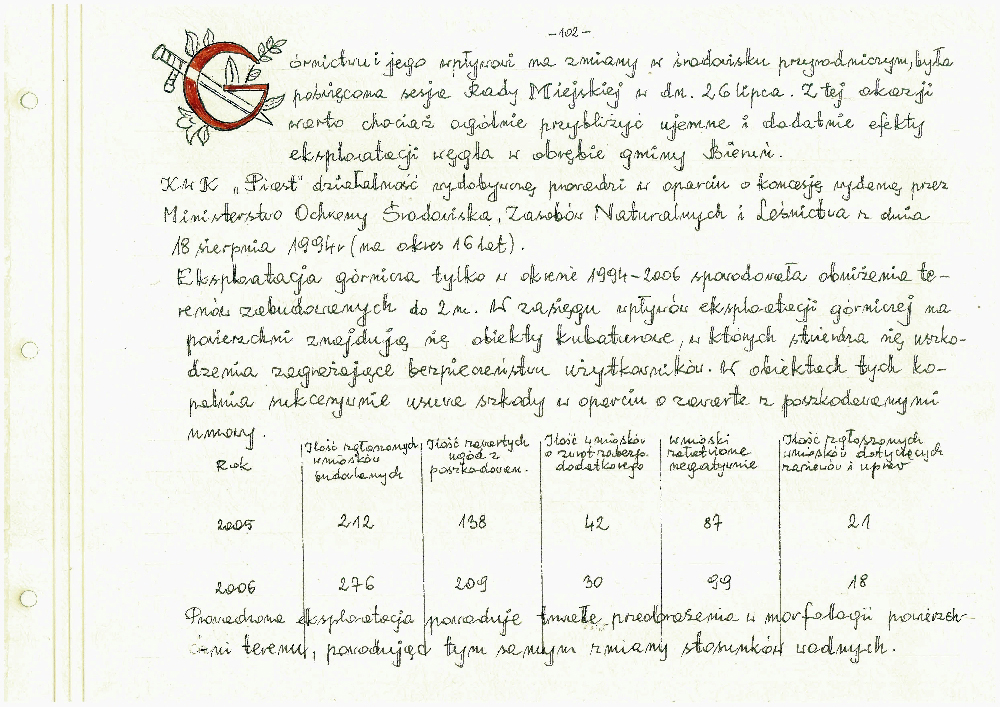 -102-
Górnictwu i jego wpływowi na zmiany w środowisku przyrodniczym, była
poświęcona sesja Rady Miejskiej w dn. 26 lipca. Z tej okazji
warto chociaż ogólnie przybliżyć ujemne i dodatnie efekty
eksploatacji węgla w obrębie gminy Bieruń.
KWK „Piast" działalność wydobywczą prowadzi w oparciu o koncesję wydaną przez
Ministerstwo Ochrony Środowiska, Zasobów Naturalnych i Leśnictwa z dnia
18 sierpnia 1994r (na okres 16 lat).
Eksploatacja górnicza tylko w okresie 1994-2006 spowodowała obniżenia te-
renów zabudowanych do 2m. W zasięgu wpływów eksploatacji górniczej na
powierzchni znajdują się obiekty kubaturowe, w których stwierdza się uszko-
dzenia zagrażające bezpieczeństwu użytkowników. W obiektach tych ko-
palnia sukcesywnie usuwa szkody w oparciu o zawarte z poszkodowanymi
umowy.
Rok | Ilość zgłoszonych wniosków budowlanych | Ilość zawartych ugód z poszkodowan. | Ilość wniosków o zwrot zabezp. dodatkowego | wnioski załatwione negatywnie | Ilość zgłoszonych wniosków dotyczących zasiewów i upraw
2005 | 212 | 138 | 42 | 87 | 21
2006 | 276 | 209 | 30 | 99 | 18
Prowadzona eksploatacja powoduje trwałe przeobrażenia w morfologii powierzch-
ni terenu, powodując tym samym zmiany stosunków wodnych.